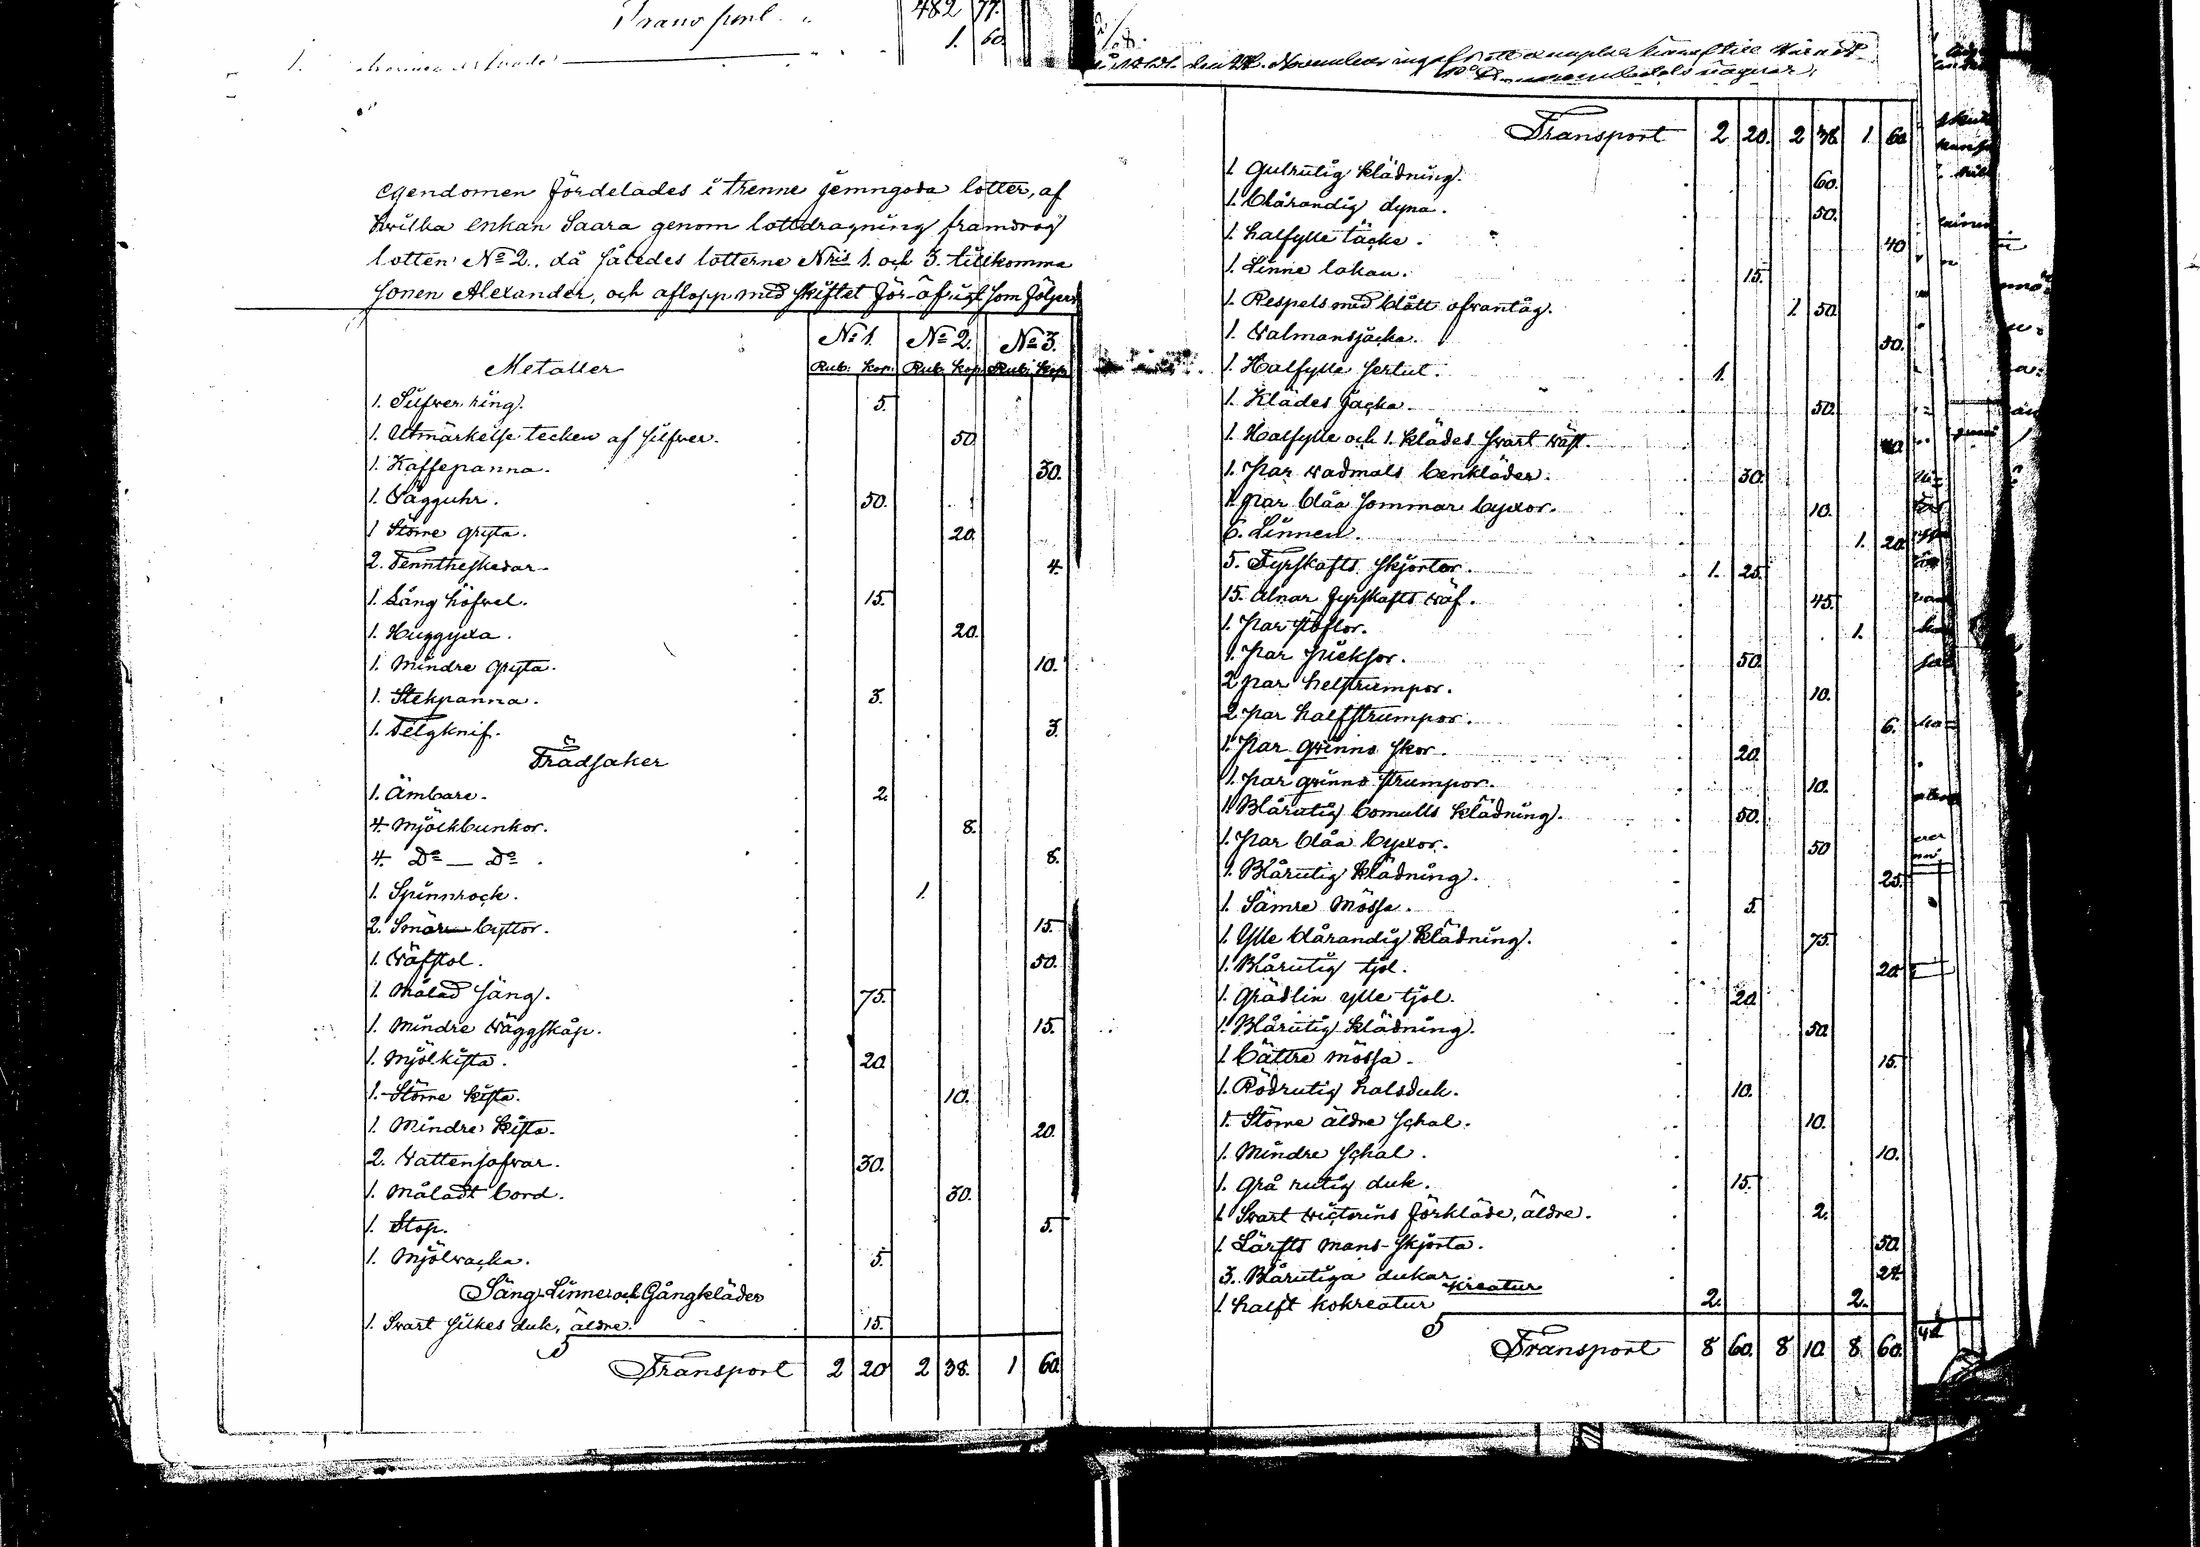 Transport " 482 77.
1. 60.
egendomen fördelades i trenne jemngoda lotter, af
hvilka enkan Saara genom lottdragning framdrog
lotten No 2., då således lotterne Nris 1. och 3. tillkomma
sonen Alexander, och aflopp med skiftet för öfrigt som följer
No 1. No 2. No 3.
Metaller Rub: Kop: Rub: Kop. Rub: Kop.
1. Silfver ring. 5.
1. Utmärkelse tecken af silfver. 50.
1. Kaffepanna. 30.
1. Vägguhr. 50.
1 Större gryta. 20.
2. Tenntheskedar. 4.
1. Lång höfvel. 15.
1. Huggyxa. 20.
1. Mindre gryta. 10.
1. Stekpanna. 3.
1. Telgknif. 3.
Trädsaker
1. Ämbare. 2.
4. Mjölkbunkor. 8.
4. Do — Do. 8.
1. Spinnrock. 1.
2. Smör byttor. 15.
1. Väfstol. 50.
1. Målad säng. 75.
1. Mindre väggskåp. 15.
1. Mjölkista. 20.
1. Större kista. 10.
1. Mindre kista. 20.
2. Vattensofvar. 30.
1. Måladt bord. 30.
1. Stop. 5.
1. Mjölvacka. 5.
Säng- Linne och Gångkläder
1. Svart silkes duk, äldre. 15.
Transport 2 20 2 38. 1 60.
November
Transport 2 20. 2 38. 1 60.
1. Gulrutig klädning. 60.
1. blårandig dyna. 50.
1. halfylle täcke. 40
1. Linne lakan. 15.
1. Respels med blått ofvantäg. 1 50.
1. Valmansjacka. 30.
1. Halfylle sertut. 1.
1. Klädes jacka. 50.
1. Halfylle och 1. klädes svart väst. 40.
1. par vadmals benkläder. 30.
1. par blåa sommar byxor. 10.
6. Linnen. 1. 20.
5. Fyrskafts skjortor. 1. 25.
15. alnar fyrskafts väf. 45.
1. par stöflor. 1.
1. par pieksor. 50.
2 par helstrumpor. 10.
2 par halfstrumpor. 6.
1. par qvinns skor. 20.
1. par qvinns strumpor. 10.
1. Blårutig bomulls klädning. 50.
1. par blåa byxor. 50
1. Blårutig klädning. 25.
1. Sämre mössa. 5.
1. Ylle blårandig klädning. 75.
1. Blårutig tjol. 20.
1. Grädlin ylle tjol. 20.
1. Blårutig klädning. 50.
1. bättre mössa. 15.
1. Rödrutig halsduk. 10.
1. Större äldre schal. 10.
1. Mindre schal. 10.
1. Grå rutig duk. 15.
1. Svart victorins förkläde, äldre. 2.
1. Lärfts mans-skjorta. 50.
3. Blårutiga dukar 24.
Kreatur
1. halft kokreatur 2. 2.
Transport 8 60. 8 10. 8 60.